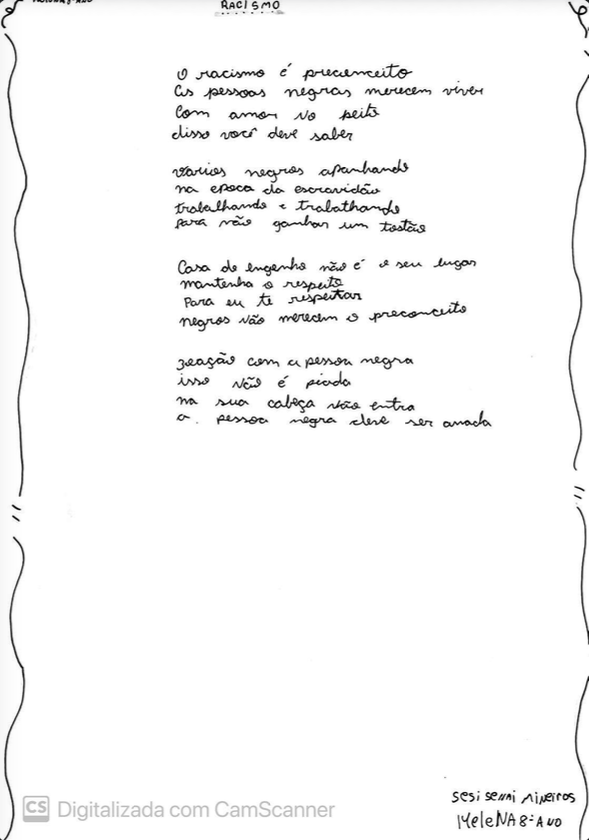 RACISMO
O racismo é preconceito
As pessoas negras merecem viver
Com amor no peito
disso você deve saber
vários negros apanhando
na epoca da escravidão
trabalhando e trabalhando
para não ganhar um tostão
Casa de engenho não é o seu lugar
mantenha o respeito
Para eu te respeitar
negros não merecem o preconceito
zoação com a pessoa negra
isso não é piada
na sua cabeça não entra
a pessoa negra deve ser amada
CS Digitalizada com CamScanner
sesi senai Mineiros
HeleNA 8º ANO